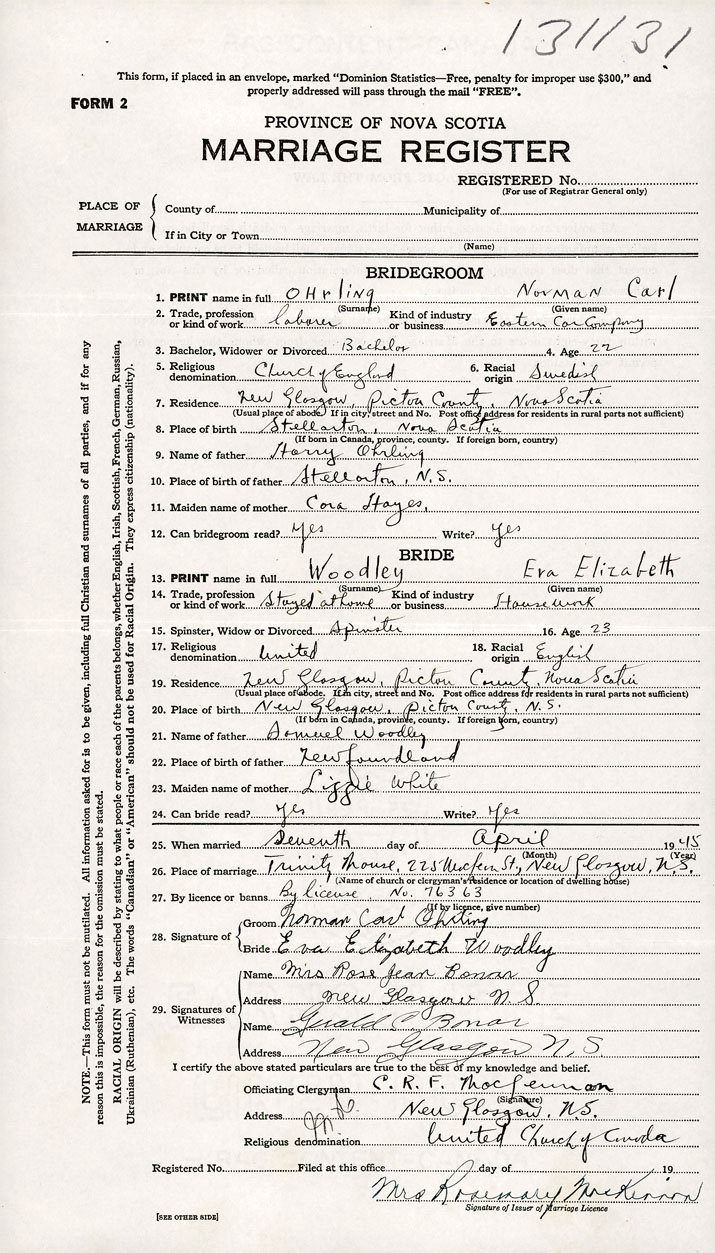 131131
This form, if placed in an envelope, marked "Dominion Statistics—Free, penalty for improper use $300," and
properly addressed will pass through the mail "FREE".
FORM 2
PROVINCE OF NOVA SCOTIA
MARRIAGE REGISTER
REGISTERED No.
(For use of Registrar General only)
PLACE OF MARRIAGE
County of Municipality of
If in City or Town
(Name)
BRIDEGROOM
1. PRINT name in full OHrling Norman Carl
(Surname) (Given name)
2. Trade, profession or kind of work laborer Kind of industry or business Eastern Car Company
3. Bachelor, Widower or Divorced Bachelor 4. Age 22
5. Religious denomination Church of England 6. Racial origin Swedish
7. Residence New Glasgow, Pictou County, Nova Scotia
(Usual place of abode. If in city, street and No. Post office address for residents in rural parts not sufficient)
8. Place of birth Stellarton, Nova Scotia
(If born in Canada, province, county. If foreign born, country)
9. Name of father Harry Ohrling
10. Place of birth of father Stellarton, N.S.
11. Maiden name of mother Cora Hayes,
12. Can bridegroom read? Yes Write? Yes
BRIDE
13. PRINT name in full Woodley Eva Elizabeth
(Surname) (Given name)
14. Trade, profession or kind of work Stayed at home Kind of industry or business House work
15. Spinster, Widow or Divorced Spinster 16. Age 23
17. Religious denomination United 18. Racial origin English
19. Residence New Glasgow, Pictou County, Nova Scotia
(Usual place of abode. If in city, street and No. Post office address for residents in rural parts not sufficient)
20. Place of birth New Glasgow, Pictou County, N.S.
(If born in Canada, province, county. If foreign born, country)
21. Name of father Samuel Woodley
22. Place of birth of father Newfoundland
23. Maiden name of mother Lizzie White
24. Can bride read? Yes Write? Yes
25. When married Seventh day of April 1945
(Month) (Year)
26. Place of marriage Trinity Manse, 225 MacLean St., New Glasgow, N.S.
(Name of church or clergyman's residence or location of dwelling house)
27. By licence or banns By license, No. 76363
(If by licence, give number)
28. Signature of
Groom Norman Carl Ohrling
Bride Eva Elizabeth Woodley
29. Signatures of Witnesses
Name Mrs Rose Jean Bonar
Address New Glasgow N.S.
Name Gerald Bonar
Address New Glasgow N.S.
I certify the above stated particulars are true to the best of my knowledge and belief.
Officiating Clergyman C. R. F. MacLennan
(Signature)
Address New Glasgow, N.S.
Religious denomination United Church of Canada
Registered No. Filed at this office day of 19
Mrs Rosemary MacKinnon
Signature of Issuer of Marriage Licence
[SEE OTHER SIDE]
NOTE.—This form must not be mutilated. All information asked for is to be given, including full Christian and surnames of all parties, and if for any
reason this is impossible, the reason for the omission must be stated.
RACIAL ORIGIN will be described by stating to what people or race each of the parents belongs, whether English, Irish, Scottish, French, German, Russian,
Ukrainian (Ruthenian), etc. The words "Canadian" or "American" should not be used for Racial Origin. They express citizenship (nationality).